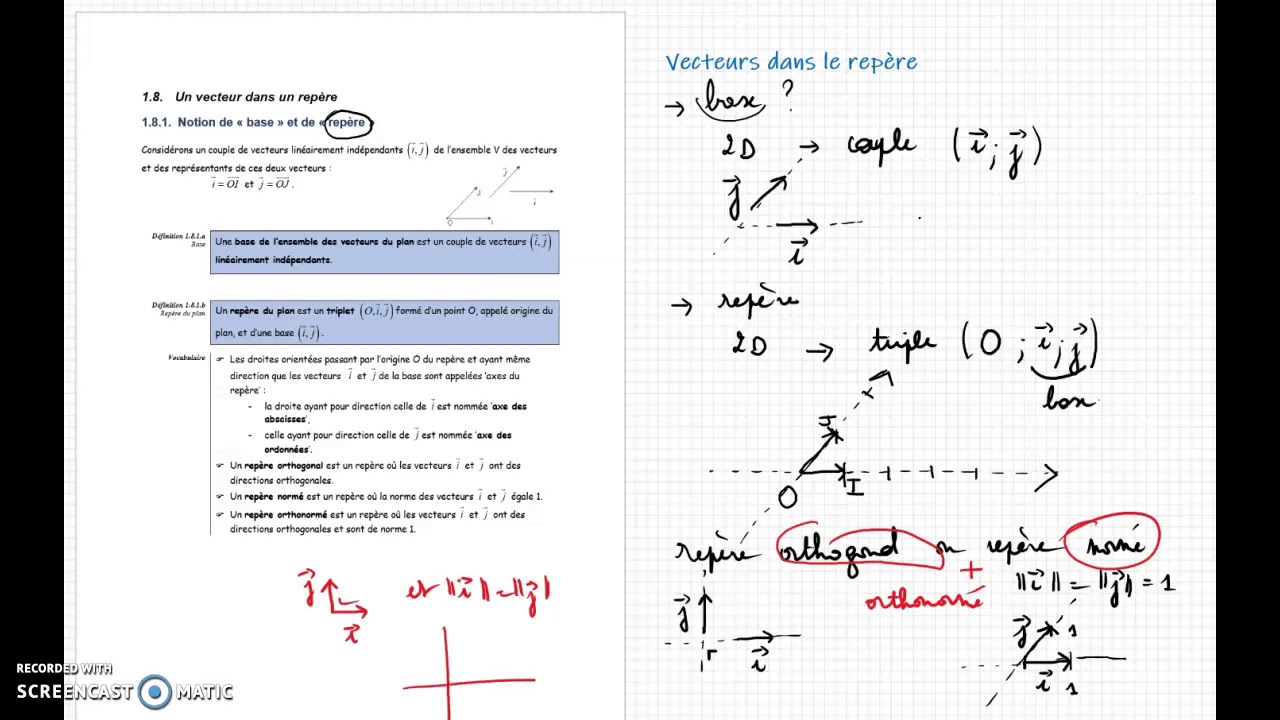 1.8. Un vecteur dans un repère
1.8.1. Notion de « base » et de « repère »
Considérons un couple de vecteurs linéairement indépendants (i⃗, j⃗) de l'ensemble V des vecteurs
et des représentants de ces deux vecteurs :
i⃗ = OI⃗ et j⃗ = OJ⃗ .
Définition 1.8.1.a
Base
Une base de l'ensemble des vecteurs du plan est un couple de vecteurs (i⃗, j⃗)
linéairement indépendants.
Définition 1.8.1.b
Repère du plan
Un repère du plan est un triplet (O, i⃗, j⃗) formé d'un point O, appelé origine du
plan, et d'une base (i⃗, j⃗) .
Vocabulaire
☞ Les droites orientées passant par l'origine O du repère et ayant même
direction que les vecteurs i⃗ et j⃗ de la base sont appelées 'axes du
repère' :
- la droite ayant pour direction celle de i⃗ est nommée 'axe des
abscisses',
- celle ayant pour direction celle de j⃗ est nommée 'axe des
ordonnées'.
☞ Un repère orthogonal est un repère où les vecteurs i⃗ et j⃗ ont des
directions orthogonales.
☞ Un repère normé est un repère où la norme des vecteurs i⃗ et j⃗ égale 1.
☞ Un repère orthonormé est un repère où les vecteurs i⃗ et j⃗ ont des
directions orthogonales et sont de norme 1.
j⃗
i⃗
et ||i⃗|| = ||j⃗||
Vecteurs dans le repère
→ base ?
2D → couple (i⃗ ; j⃗)
j⃗
i⃗
→ repère
2D → triple (O ; i⃗ ; j⃗)
base
J
O I
repère orthogonal ou repère normé
+
orthonormé
||i⃗|| = ||j⃗|| = 1
j⃗
i⃗
j⃗ 1
i⃗ 1
RECORDED WITH
SCREENCAST MATIC